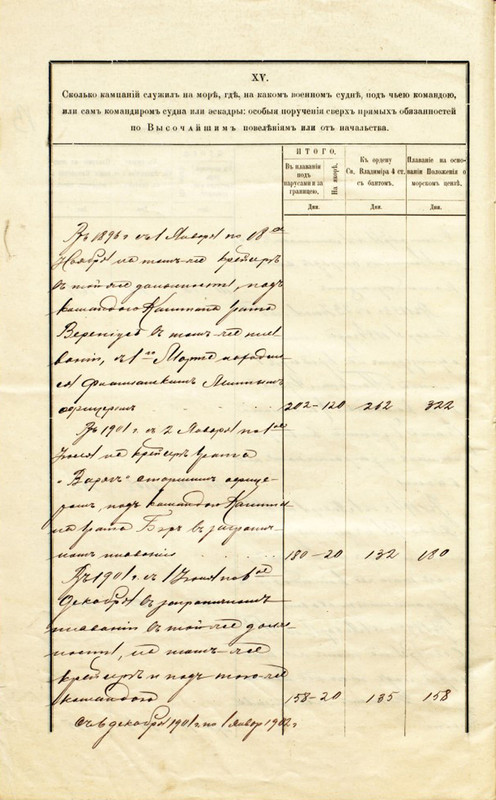 XV.
Сколько кампаній служилъ на морѣ, гдѣ, на какомъ военномъ суднѣ, подъ чьею командою,
или самъ командиромъ судна или эскадры: особыя порученія сверхъ прямыхъ обязанностей
по Высочайшимъ повелѣніямъ или отъ начальства.
ИТОГО.
Въ плаваніи
подъ
парусами и за
границею.
На якорѣ.
Къ ордену
Св. Владиміра 4 ст.
съ бантомъ.
Плаваніе на осно-
ваніи Положенія о
морскомъ цензѣ.
Дни.
Дни.
Дни.
Въ 1896 г. съ 1 Января по 18ое
Ноября на томъ-же крейсерѣ
въ той-же должности, подъ
командою Капитана 1 ранга
въ томъ-же пла-
ваніи, съ 1го Марта
Флагманскимъ Миннымъ
офицеромъ 202-120 262 322
Въ 1901 г. съ 2 Января по 1ое
Іюня на крейсерѣ 1 ранга
"Варягъ" старшимъ офице-
ромъ подъ командою Капита-
на 1 ранга Бэръ въ загранич-
номъ плаваніи 180-20 132 180
Въ 1901 г. съ 1 Іюня по 6ое
Декабря въ заграничномъ
плаваніи въ той-же долж-
ности, на томъ-же
крейсерѣ и подъ тою-же
командою 158-20 135 158
Съ 6 декабря 1901 г. по 1 январ 1902 г